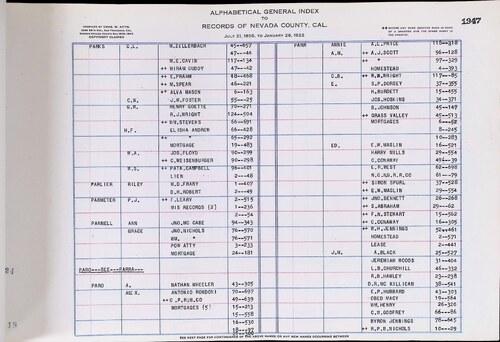 1947
ALPHABETICAL GENERAL INDEX
TO
RECORDS OF NEVADA COUNTY, CAL.
COPYRIGHT CLAIMED
PARKS G.L. W.ZELLERBACH 45--457
47--46
M.E.GAVIN 117--134
↔ HIRAM GUDDY 47--42
↔ E.PRAMM 48--468
↔ M.SPEAR 46--221
↔ ALVA MASON 6--163
J.W.FOSTER 55--25
HENRY GOETTE 70--271
R.J.WRIGHT 124--504
↔ WM.STEVENS 66--691
H.F. ELISHA ANDREW 66--428
↔ " 65--292
MORTGAGE 19--483
W.A. JOS.FLOYD 90--299
↔ C.WEISENBURGER 90--298
W.S. ↔ PATK.CAMPBELL 96--461
LIEN 2--48
PARLIER RILEY W.D.FRARY 1--407
D.H.ROBERT 2--49
PARMETER P.J. ↔ F.LEARY 2--515
HIS RECORDS (2) 1--236
2--54
PARNELL ANN JNO.MC CABE 94--343
GRACE JNO.NICHOLS 76--570
WM. " 76--571
POW ATTY 3--233
MORTGAGE 24--181
PARO---SEE---PARRA---
PARO A. NATHAN WHEELER 43--305
ALEX. ANTONIO RONDONI 70--697
↔ C.P.R.R.CO 49--639
MORTGAGES (5) 2--213
15--558
16--530
18--492
PARR ANNIE A.L.PRICE 110--318
A.W. ↔ A.J.SCOTT 56--128
↔ " 97--329
HOMESTEAD 4--393
C.B. ↔ W.WRIGHT 117--85
E. S.P.DORSEY 37--355
H.BURDETT 15--455
JOS.HOSKING 36--371
B.JOHNSON 45--147
↔ GRASS VALLEY 45--513
MORTGAGES 6--52
8--245
10--283
ED. E.W.MASLIN 16--521
HARRY MILLS 29--554
C.CONAWAY 49--39
E.R.WEST 62--698
N.C.N.G.R.R.CO 79--131
↔ SIMON SPURL 37--528
↔ E.W.MASLIN 29--554
↔ JNO.BENNETT 26--268
↔ S.ABRAHAM 29--62
↔ F.N.STEWART 15--562
↔ C.CONAWAY 16--305
↔ R.H.JENNINGS 52--461
HOMESTEAD 2--571
LEASE 2--441
J.W. A.BLACK 25--527
JEREMIAH WOODS 31--404
L.B.CHURCHILL 46--332
R.B.HAWLEY 23--238
D.R.MC KILLICAN 38--541
E.P.HUBBARD 43--303
OBED MACY 19--584
WM.HENRY 26--320
C.H.GODFREY 66--86
BYRON JENNINGS 78--645
↔ R.P.B.NICHOLS 10--29
SEE NEXT PAGE FOR CONTINUANCE OF THE ABOVE NAMES OR ANY NEW NAMES OCCURRING BETWEEN